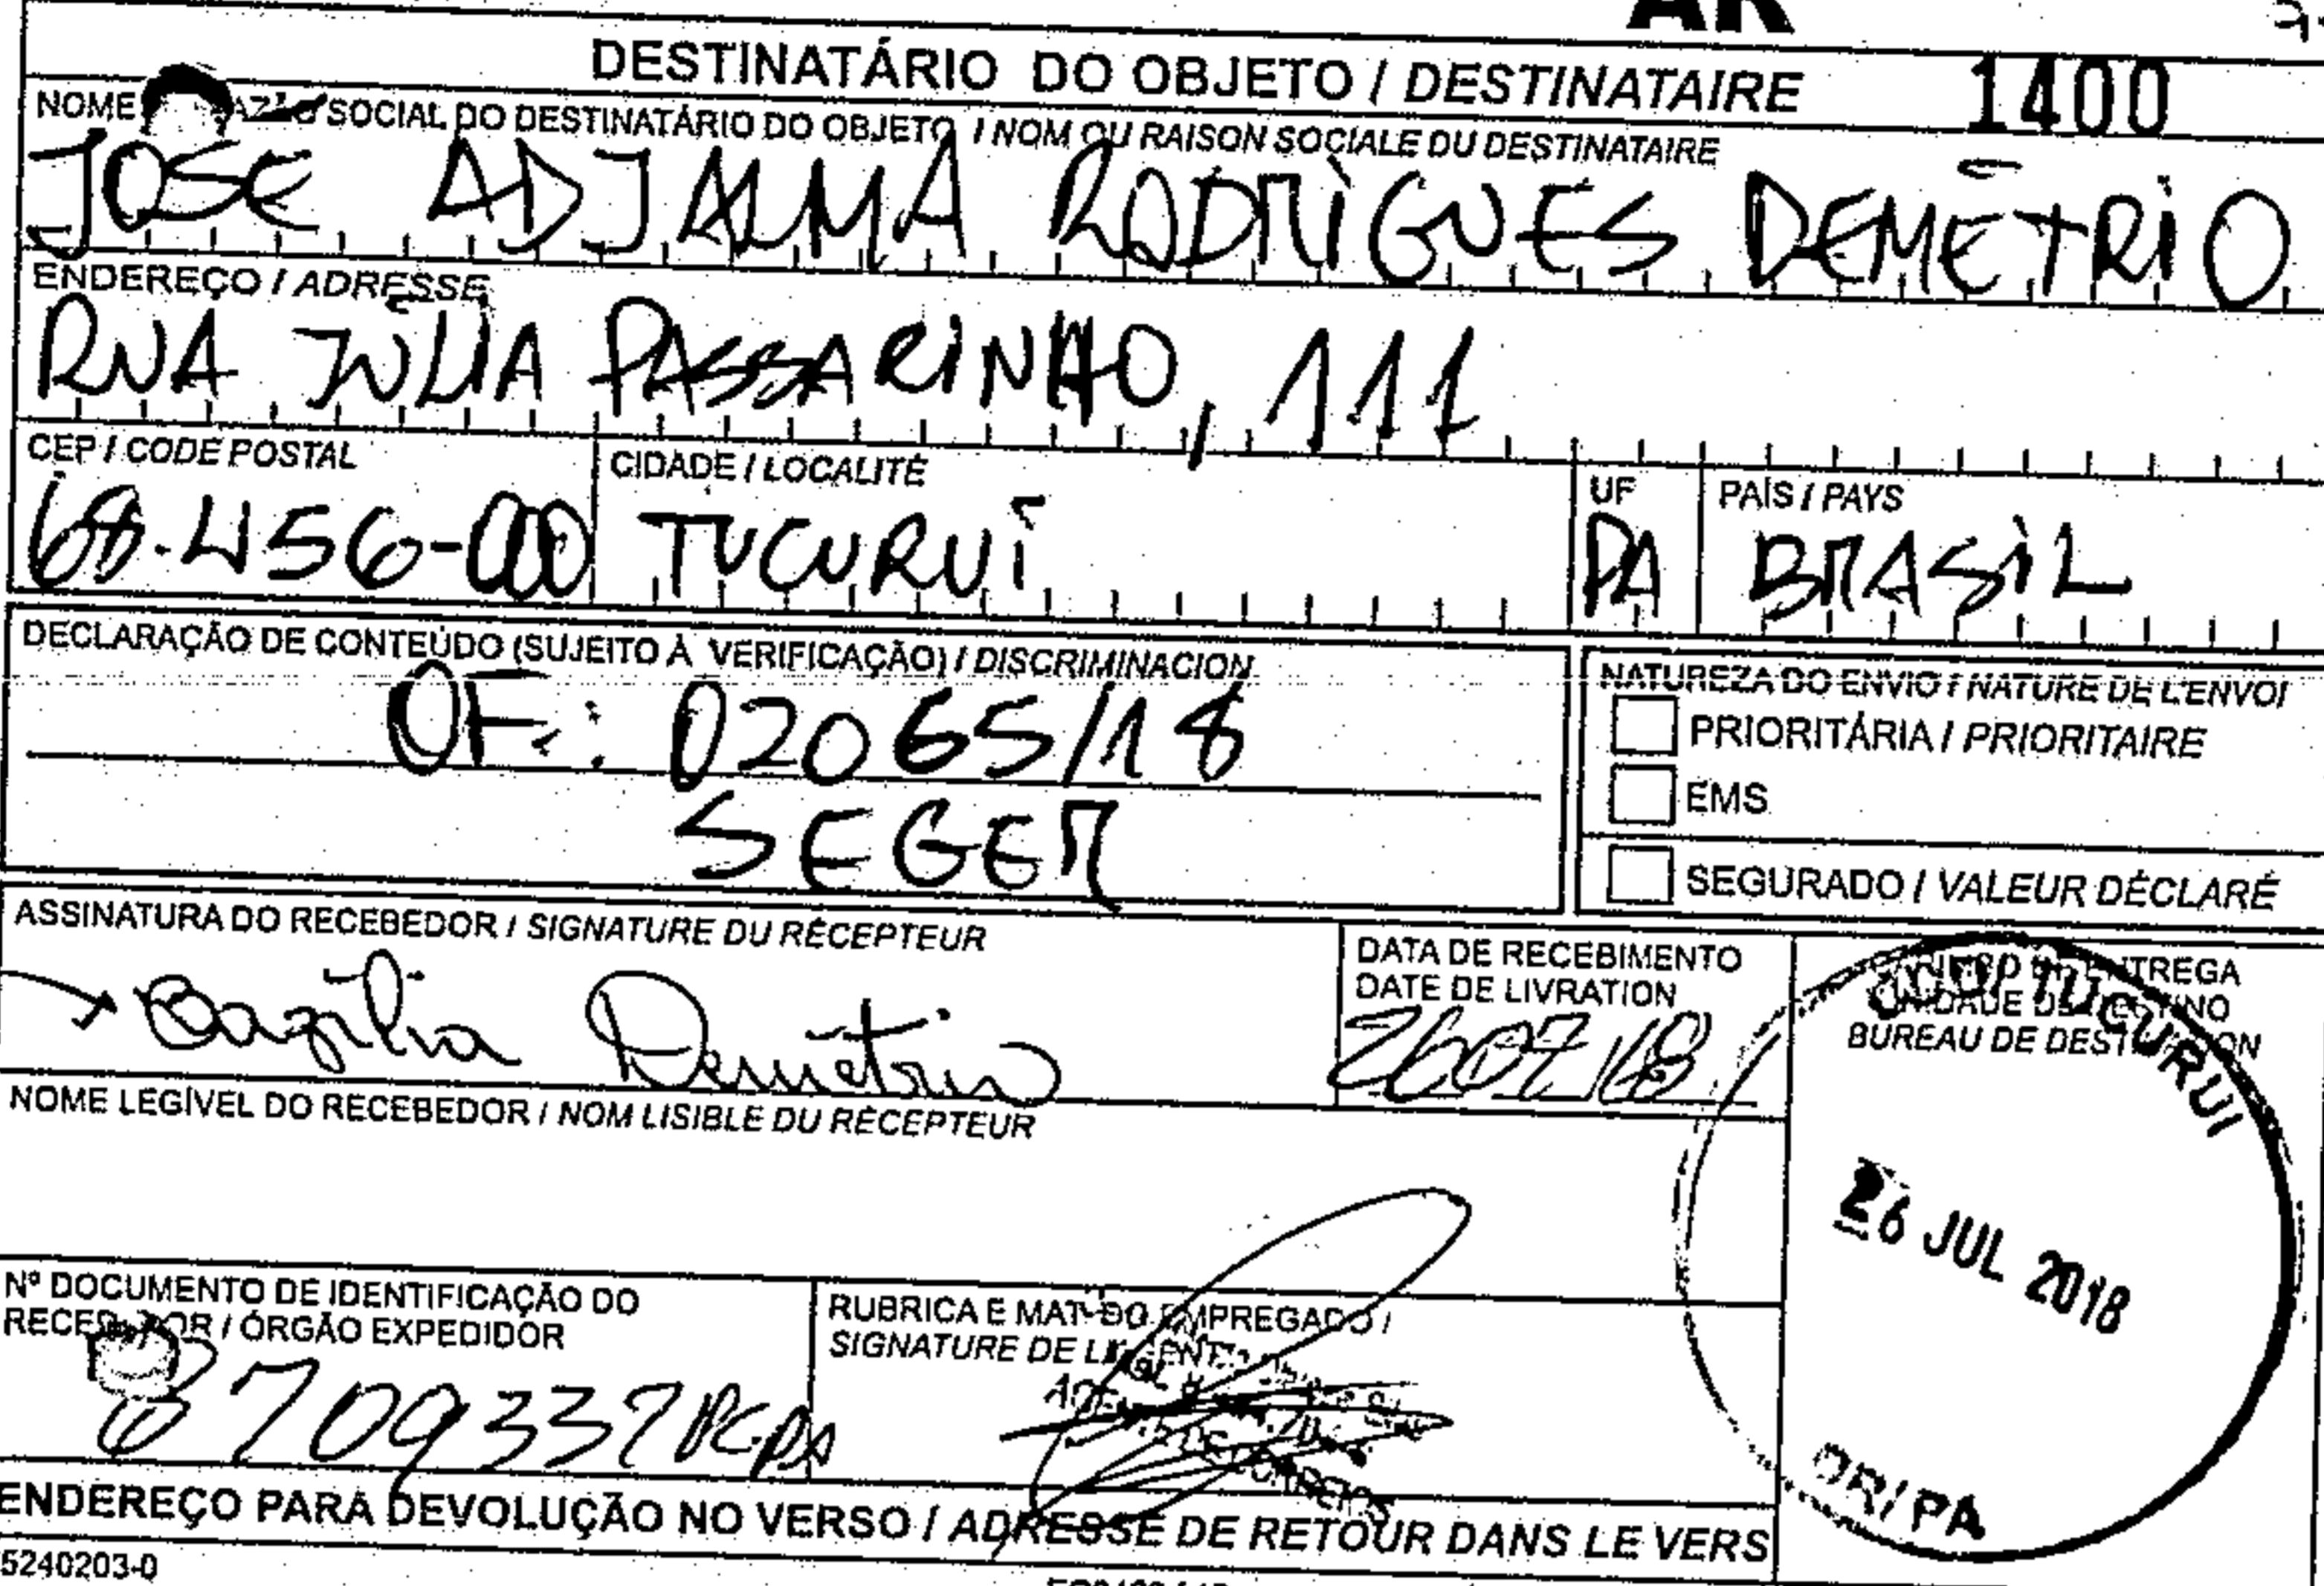 AR
DESTINATÁRIO DO OBJETO / DESTINATAIRE
1400
NOME SOCIAL DO DESTINATÁRIO DO OBJETO / NOM OU RAISON SOCIALE DU DESTINATAIRE
JOSÉ ADJALMA RODRIGUES DEMÉTRIO
ENDEREÇO / ADRESSE
RUA JÚLIA PASSARINHO, 111
CEP / CODE POSTAL
CIDADE / LOCALITÉ
UF
PAÍS / PAYS
68.456-000
TUCURUÍ
PA
BRASIL
DECLARAÇÃO DE CONTEÚDO (SUJEITO À VERIFICAÇÃO) / DISCRIMINACION
OF.: 02065/18
SEGER
NATUREZA DO ENVIO / NATURE DE L'ENVOI
PRIORITÁRIA / PRIORITAIRE
EMS
SEGURADO / VALEUR DÉCLARÉ
ASSINATURA DO RECEBEDOR / SIGNATURE DU RÉCEPTEUR
Bazilia Demétrio
DATA DE RECEBIMENTO
DATE DE LIVRATION
26 07 18
BUREAU DE
TUCURUI
26 JUL 2018
DR/PA
NOME LEGÍVEL DO RECEBEDOR / NOM LISIBLE DU RÉCEPTEUR
Nº DOCUMENTO DE IDENTIFICAÇÃO DO
RECEBEDOR / ÓRGÃO EXPEDIDOR
8709337 PCPA
RUBRICA E MAT. DO EMPREGADO /
SIGNATURE DE
ENDEREÇO PARA DEVOLUÇÃO NO VERSO / ADRESSE DE RETOUR DANS LE VERS
5240203-0